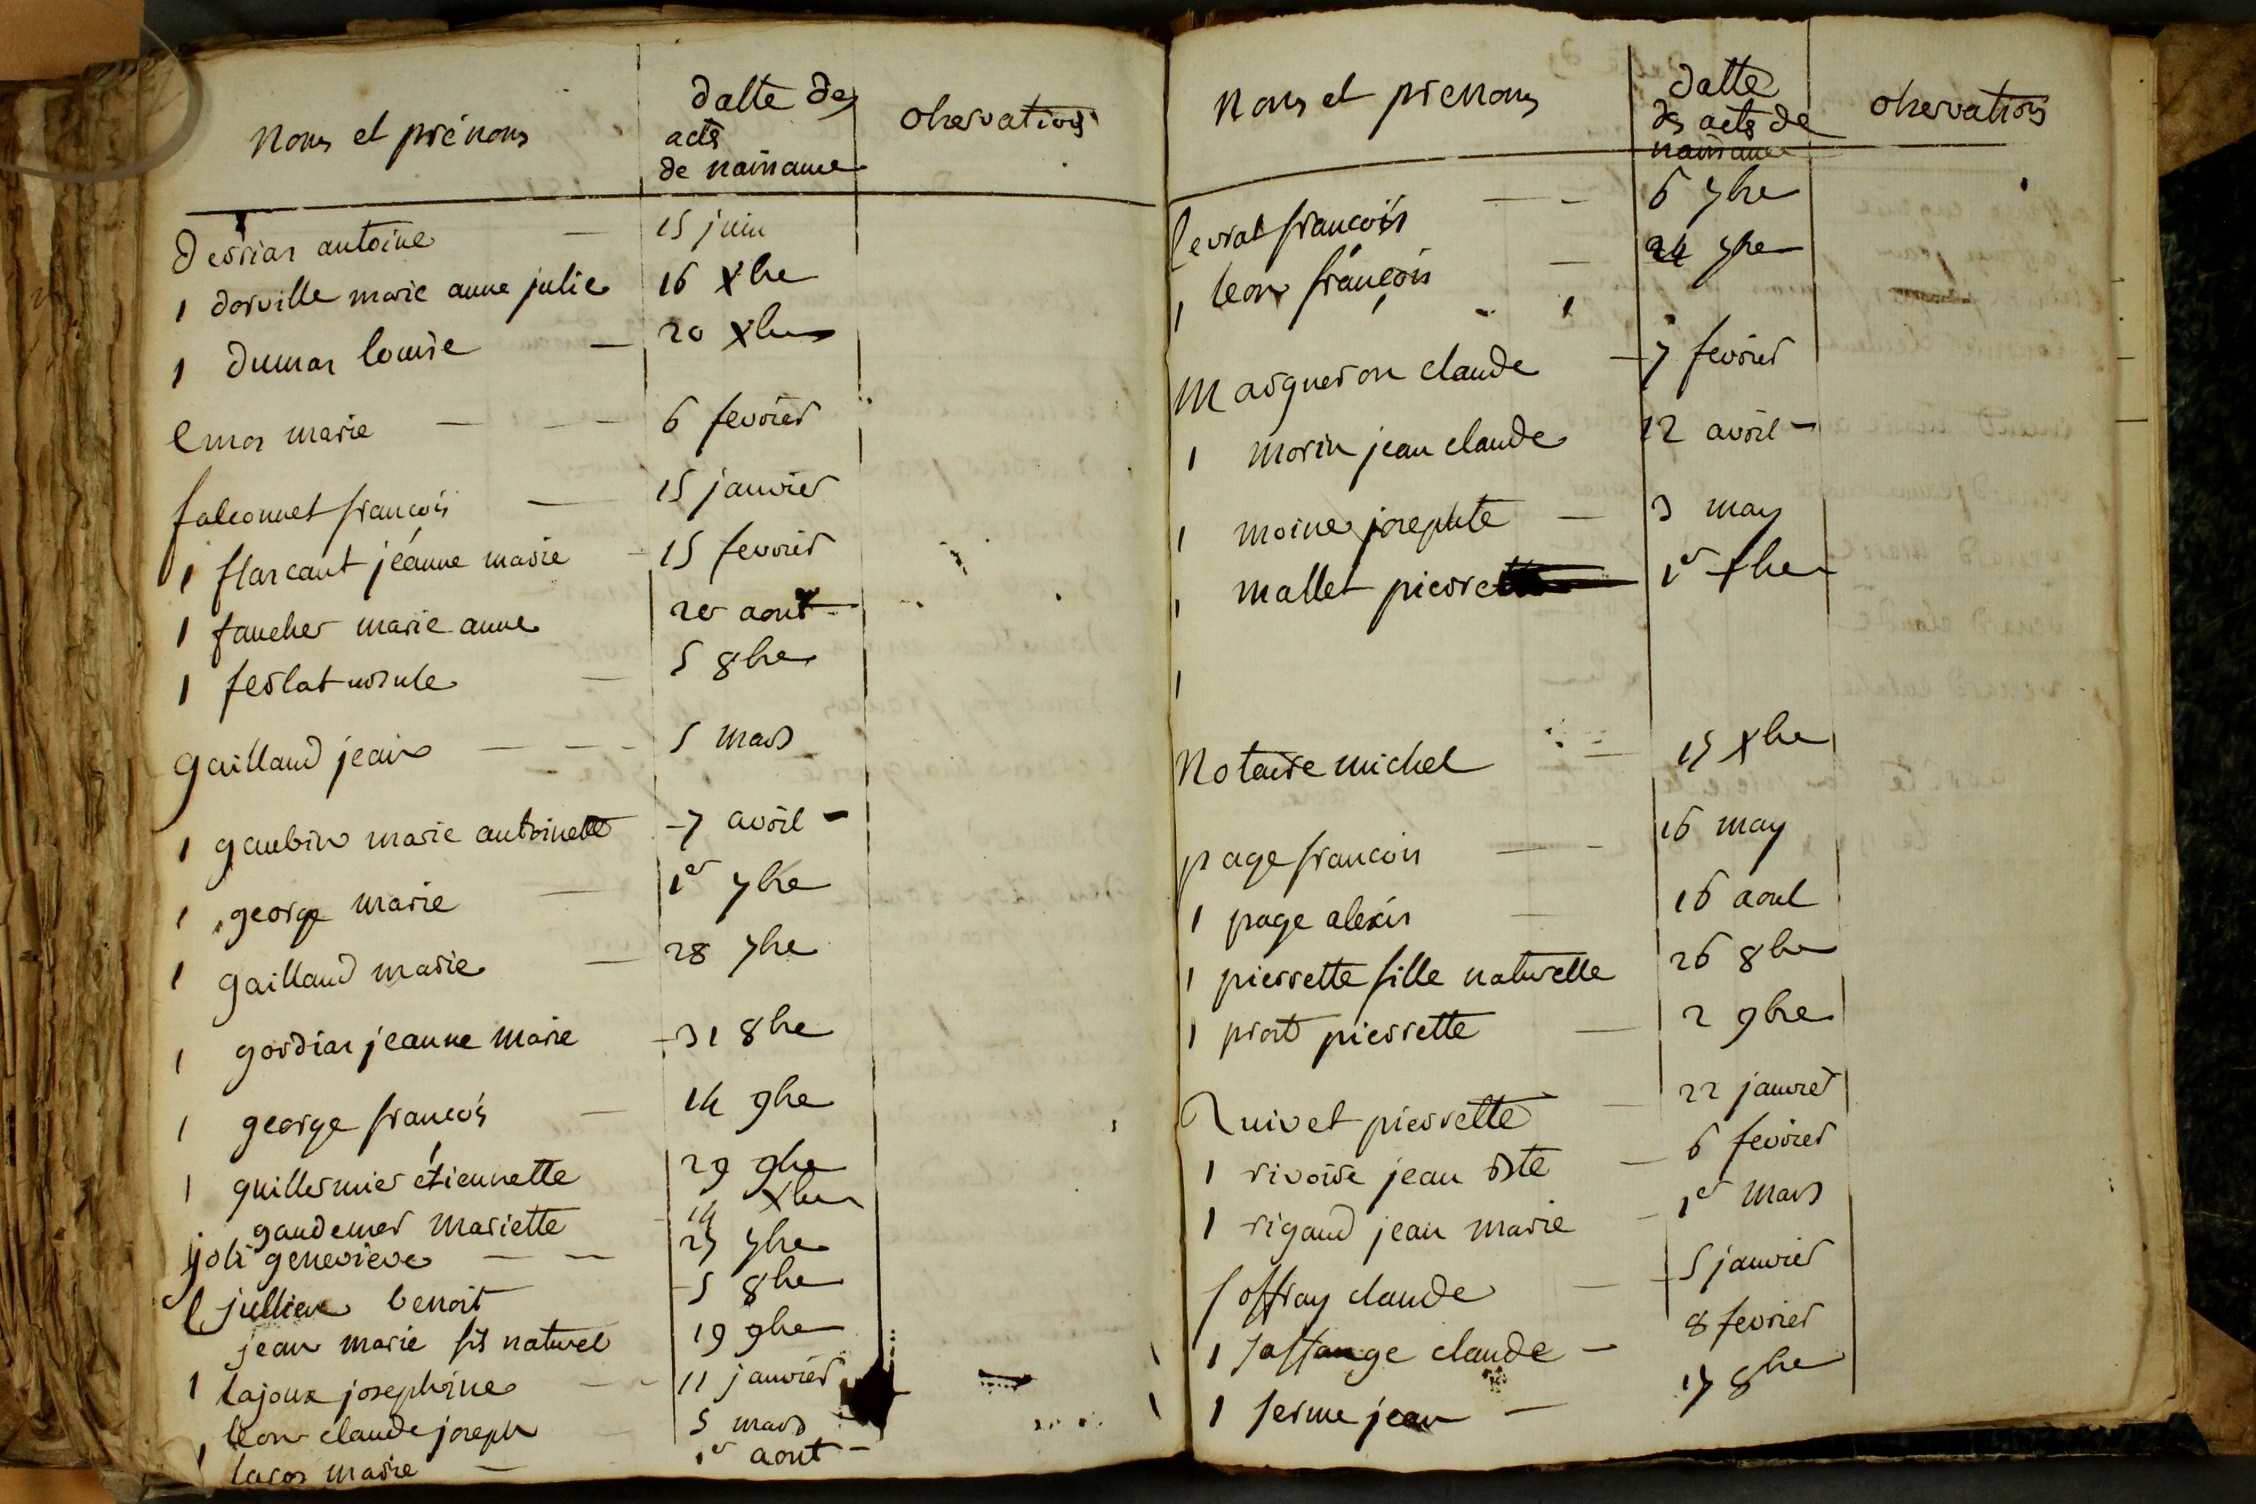 Noms et prénoms
datte des
actes
de naissance
observations
desrias antoine — 15 juin
1 dorville marie anne julie 16 Xbre
1 dumas louise — 20 Xbre
Emos marie — 6 fevrier
falconnet francois — 15 janvier
1 flarcaut jeanne marie - 15 fevrier
1 faucher marie anne 20 aout
1 ferlat ursule — 5 8bre
gaillaud jean — 5 mars
1 gaubin marie antoinette 7 avril
1 george marie — 1er 7bre
1 gaillaud marie — 28 7bre
1 gordias jeanne marie - 31 8bre
1 george francois — 14 9bre
1 guillermier étiennette 29 9bre
gaudemer mariette 14 Xbre
joli genevieve — 25 7bre
jullien benoit - 5 8bre
jean marie fils naturel 19 9bre
1 lajoux josephine — 11 janvier
1 leon claude joseph 5 mars
1 lacos marie — 1er aout
Noms et prenoms
datte
des actes de
naissance
observations
levrat francois — 6 7bre
1 leon francois — 24 7bre
Margueron claude — 7 fevrier
1 morin jean claude 12 avril
1 moine josephte — 3 may
1 mallet pierrette 1er Xbre
1
Notaire michel — 15 Xbre
page francois — 16 may
1 page alexis — 16 aout
1 pierrette fille naturelle 26 8bre
1 prost pierrette — 2 9bre
Quivet pierrette — 22 janvier
1 rivoire jean bte — 6 fevrier
1 rigaud jean marie - 1er mars
Soffray claude — 5 janvier
1 Sassange claude — 8 fevrier
1 serme jean — 17 8bre